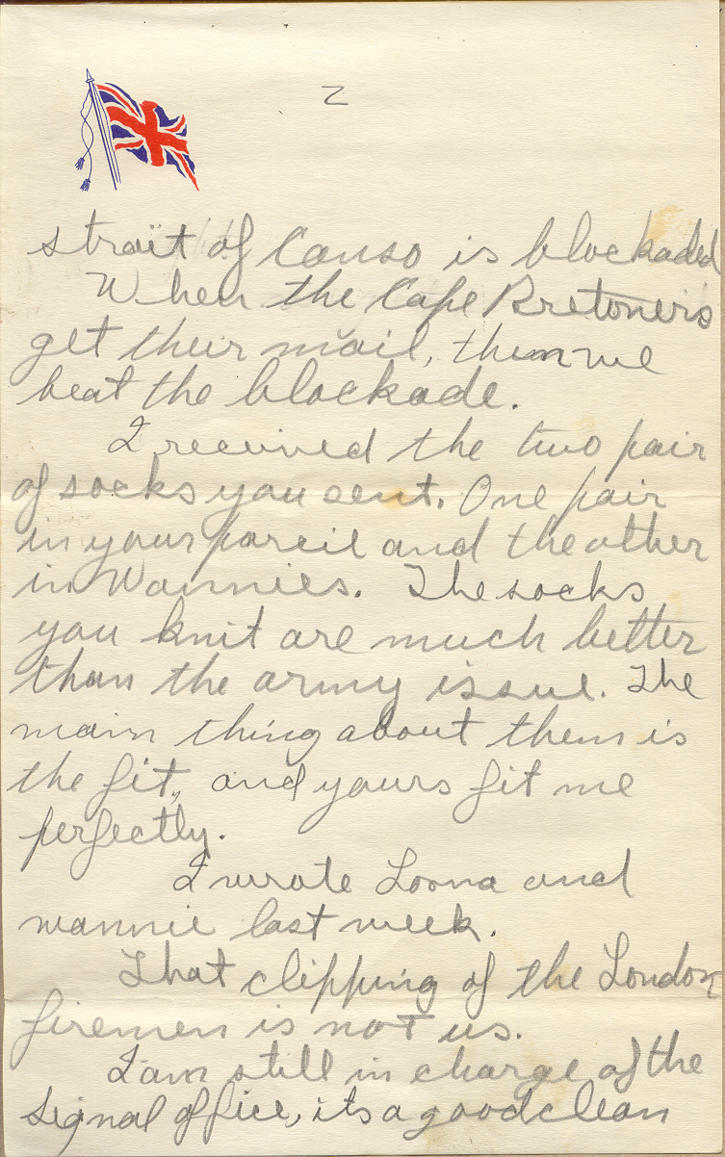 2
strait of Canso is blockaded
When the Cape Bretoners
get their mail, then we
beat the blockade.
I received the two pair
of socks you sent. One pair
in your parcil and the other
in Wannies. The socks
you knit are much better
than the army issue. The
main thing about them is
the fit, and yours fit me
perfectly.
I wrote Lorna and
wannie last week.
That clipping of the London
firemen is not us.
I am still in charge of the
Signal office, its a good clean